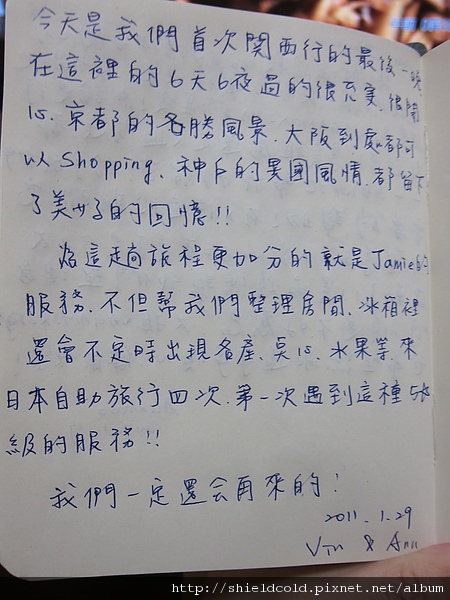 今天是我們首次関西行的最後一晚
在這裡的6天6夜過的很充實.很開
心.京都的名勝風景.大阪到處都可
以Shopping、神戶的異國風情.都留下
了美好的回憶!!
為這趟旅程更加分的就是Jamie的
服務.不但幫我們整理房間、冰箱裡
還會不定時出現名產、點心、水果等.來
日本自助旅行四次.第一次遇到這種5米
級的服務!!
我們一定還会再來的!
2011.1.29
& Ann
http://shieldcold.pixnet.net/album